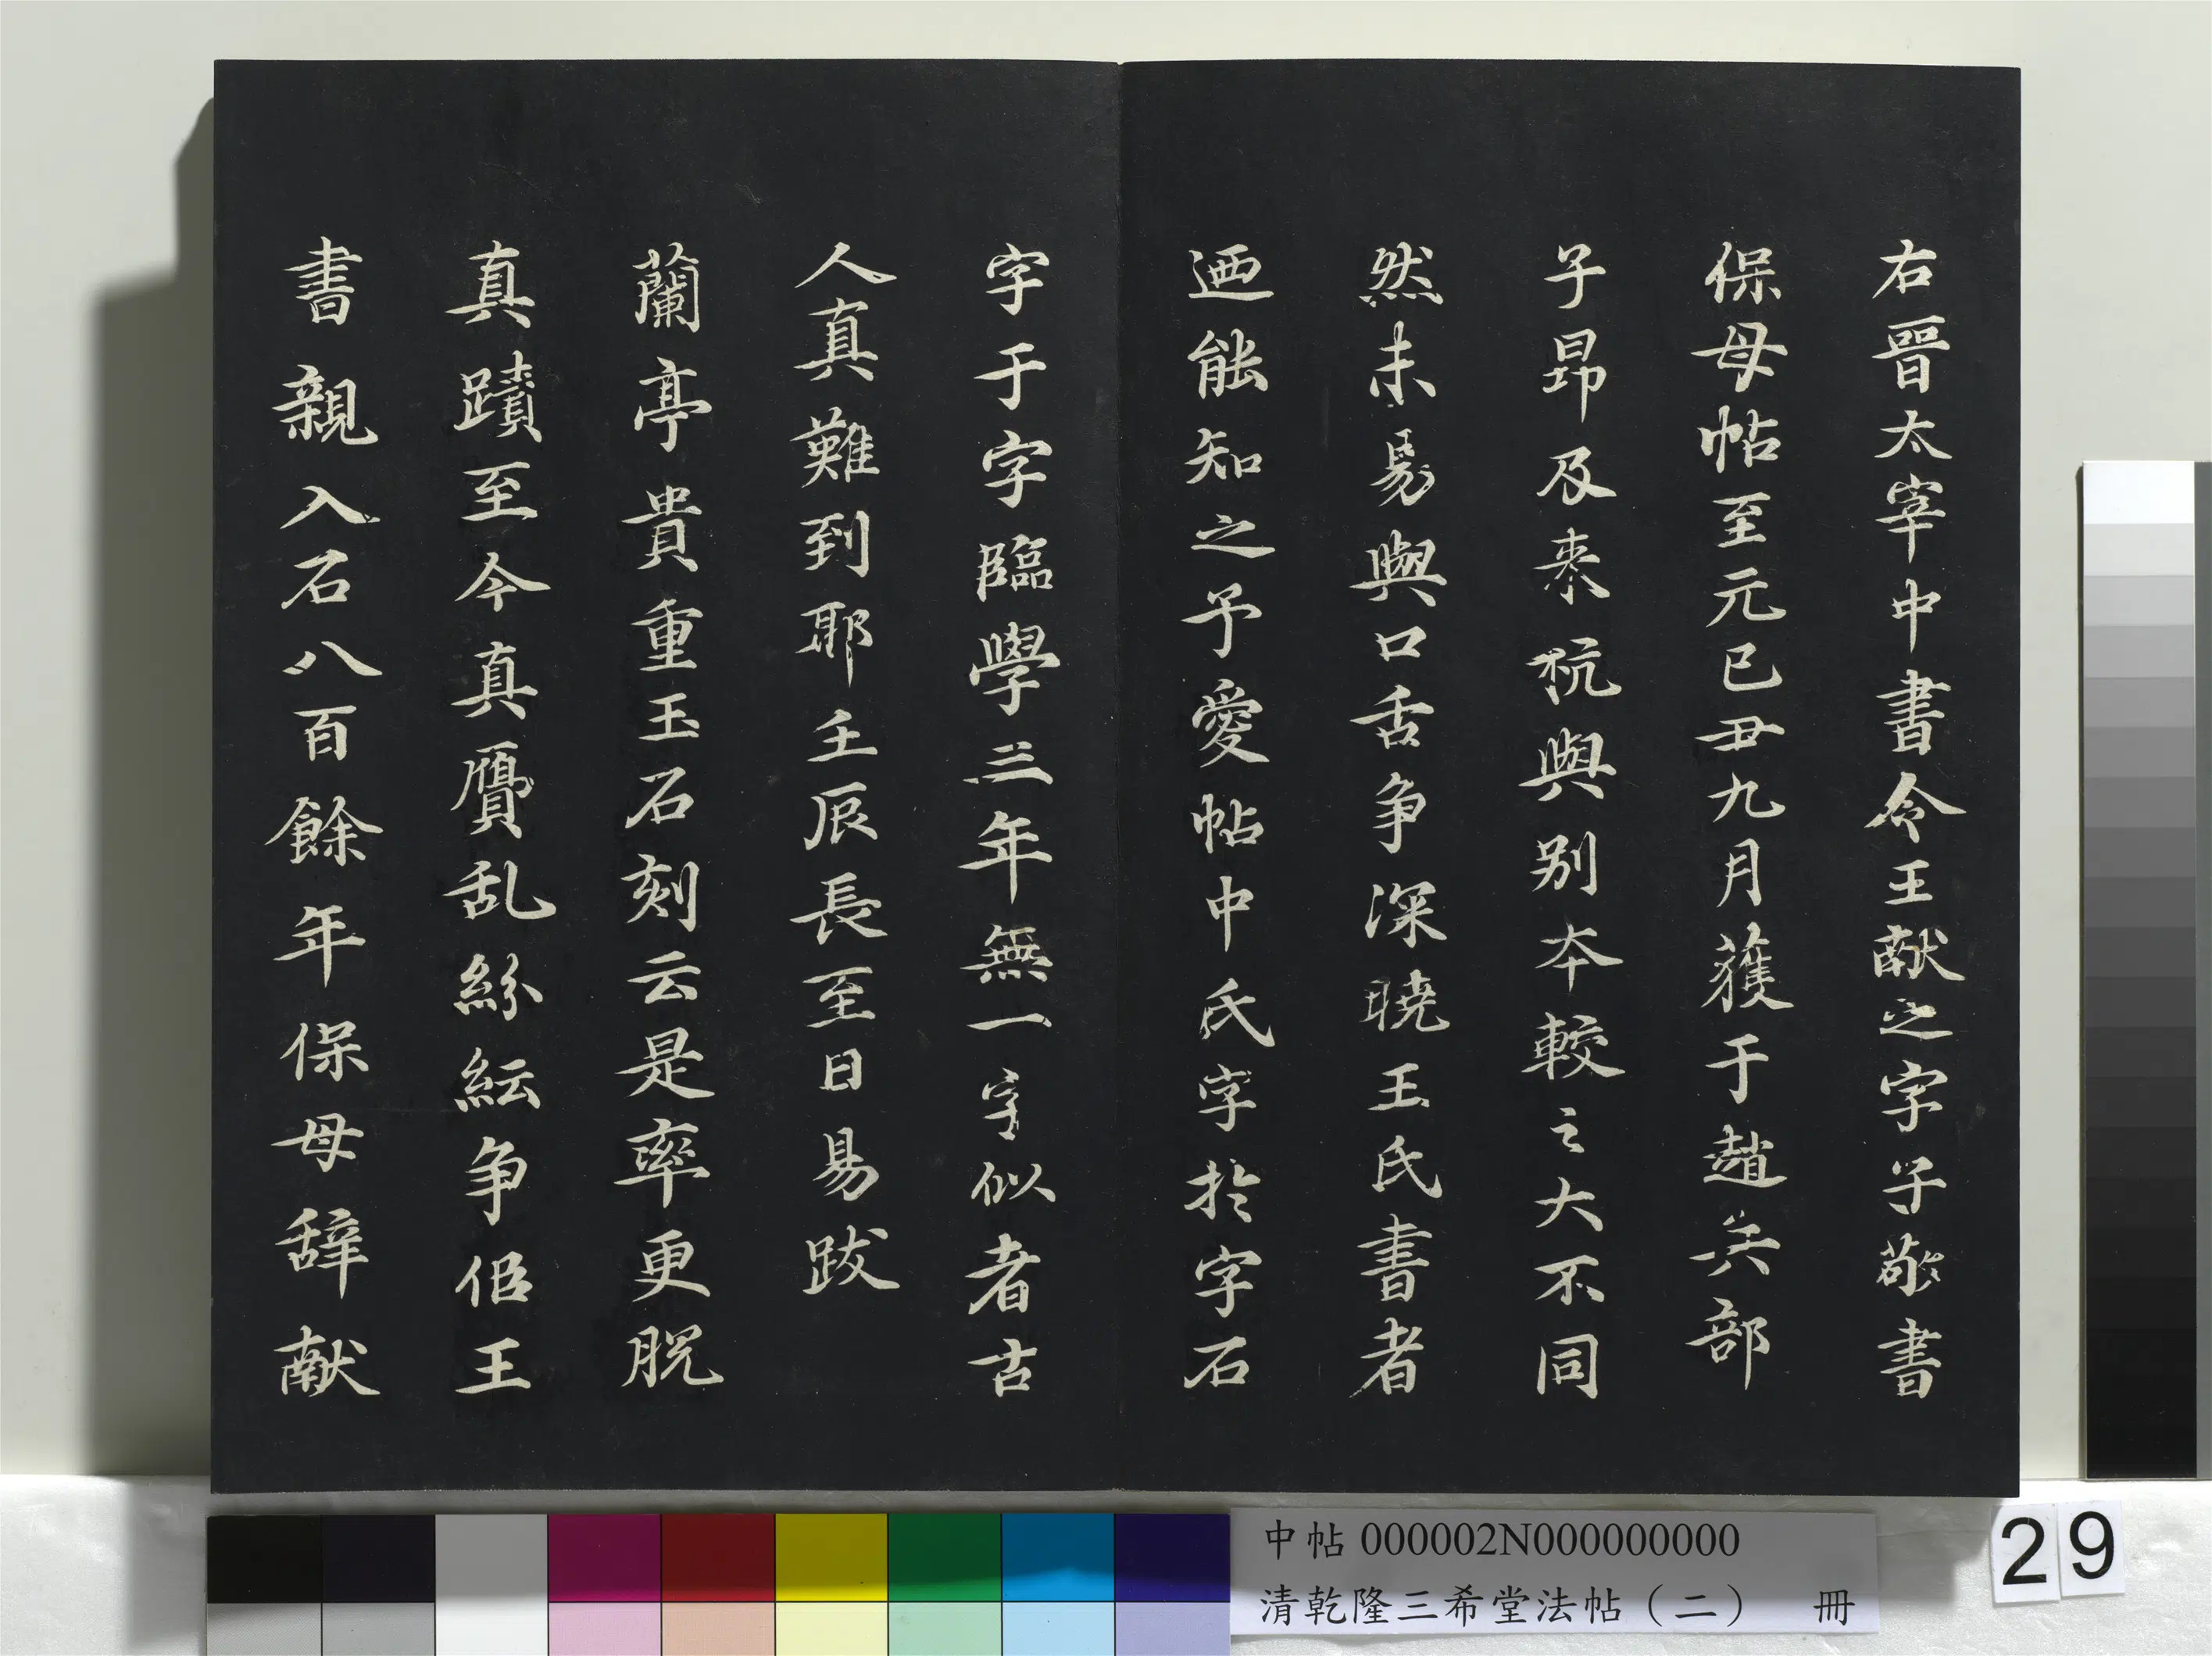 右晉太宰中書令王献之字子敬書
保母帖至元己丑九月獲于趙兵部
子昂及来杭與别本較之大不同
然未易與口舌争深曉王氏書者
迺能知之予愛帖中氏字於字石
字于字臨學三年無一字似者古
人真難到耶壬辰長至日易跋
蘭亭貴重玉石刻云是率更脱
真蹟至今真贗乱紛紜争佀王
書親入石八百餘年保母辞献
中帖 000002N000000000
清乾隆三希堂法帖（二） 冊
29